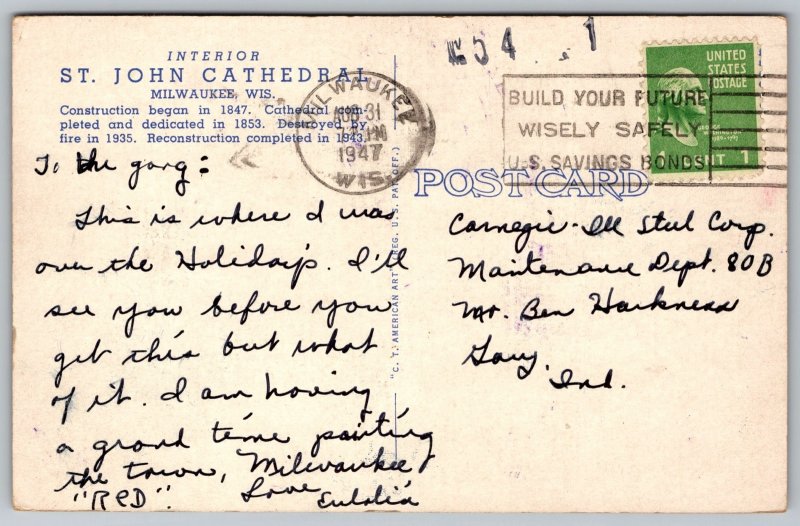 INTERIOR
ST. JOHN CATHEDRAL
MILWAUKEE, WIS.
Construction began in 1847. Cathedral com-
pleted and dedicated in 1853. Destroyed by
fire in 1935. Reconstruction completed in 1943.
To the gang:
This is where I was
over the Holiday's. I'll
see you before you
get this but what
of it. I am having
a grand time painting
the town, Milwaukee
"RED".
Love
Eulalia
"C. T. AMERICAN ART" (REG. U. S. PAT. OFF.)
54 1
MILWAUKEE
AUG 31
1947
WIS.
BUILD YOUR FUTURE
WISELY SAFELY
U.S. SAVINGS BONDS
UNITED
STATES
POSTAGE
1
POST CARD
Carnegie-Ill Steel Corp.
Maintenance Dept. 80B
Mr. Ben Harkness
Gary,
Ind.